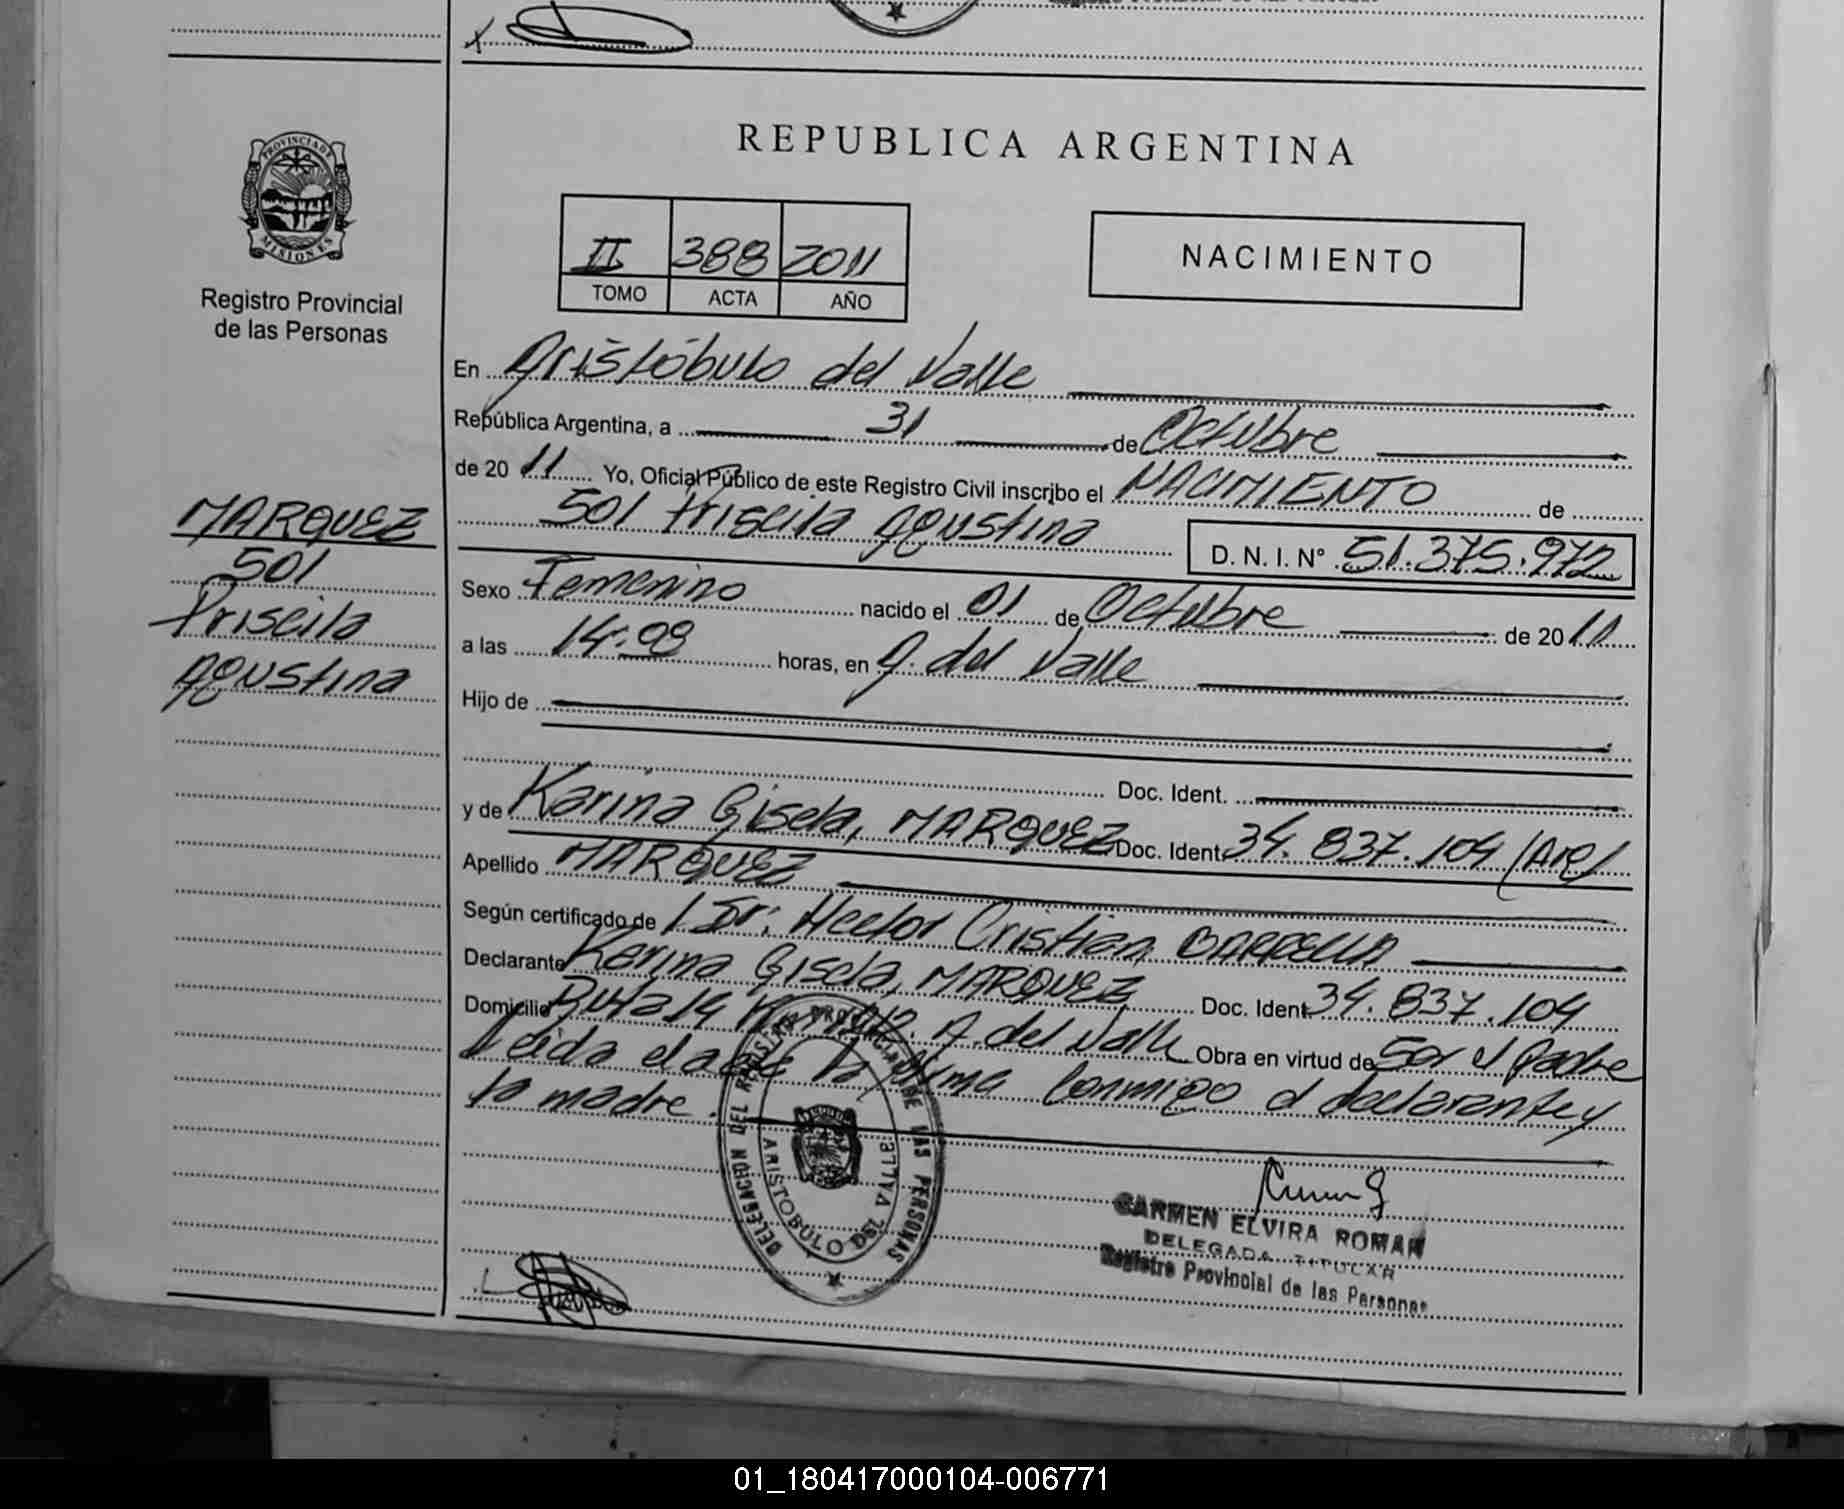 REPUBLICA ARGENTINA
PROVINCIA DE
MISIONES
Registro Provincial
de las Personas
II 388 2011
TOMO ACTA AÑO
NACIMIENTO
En Aristóbulo del Valle
República Argentina, a 31 de Octubre
de 20 11 Yo, Oficial Público de este Registro Civil inscribo el NACIMIENTO de
Priscila Agustina
D. N. I. N° 51.375.972
MARQUEZ
Priscila
Agustina
Sexo Femenino nacido el 01 de Octubre de 20 11
a las horas, en A. del Valle
Hijo de
Doc. Ident.
y de Karina Gisela, MARQUEZ Doc. Ident. 34.837.104 (ARG)
Apellido MARQUEZ
Según certificado de Hector Cristian
Declarante Karina Gisela, MARQUEZ Doc. Ident 34.837.104
Domicilio Ruta 14 A. del Valle Obra en virtud de
Leida el acta la firma conmigo el declarante y
la madre.
DELEGACION DEL REGISTRO PROVINCIAL DE LAS PERSONAS
ARISTOBULO DEL VALLE
CARMEN ELVIRA ROMAN
DELEGADA TITULAR
Registro Provincial de las Personas
01_180417000104-006771